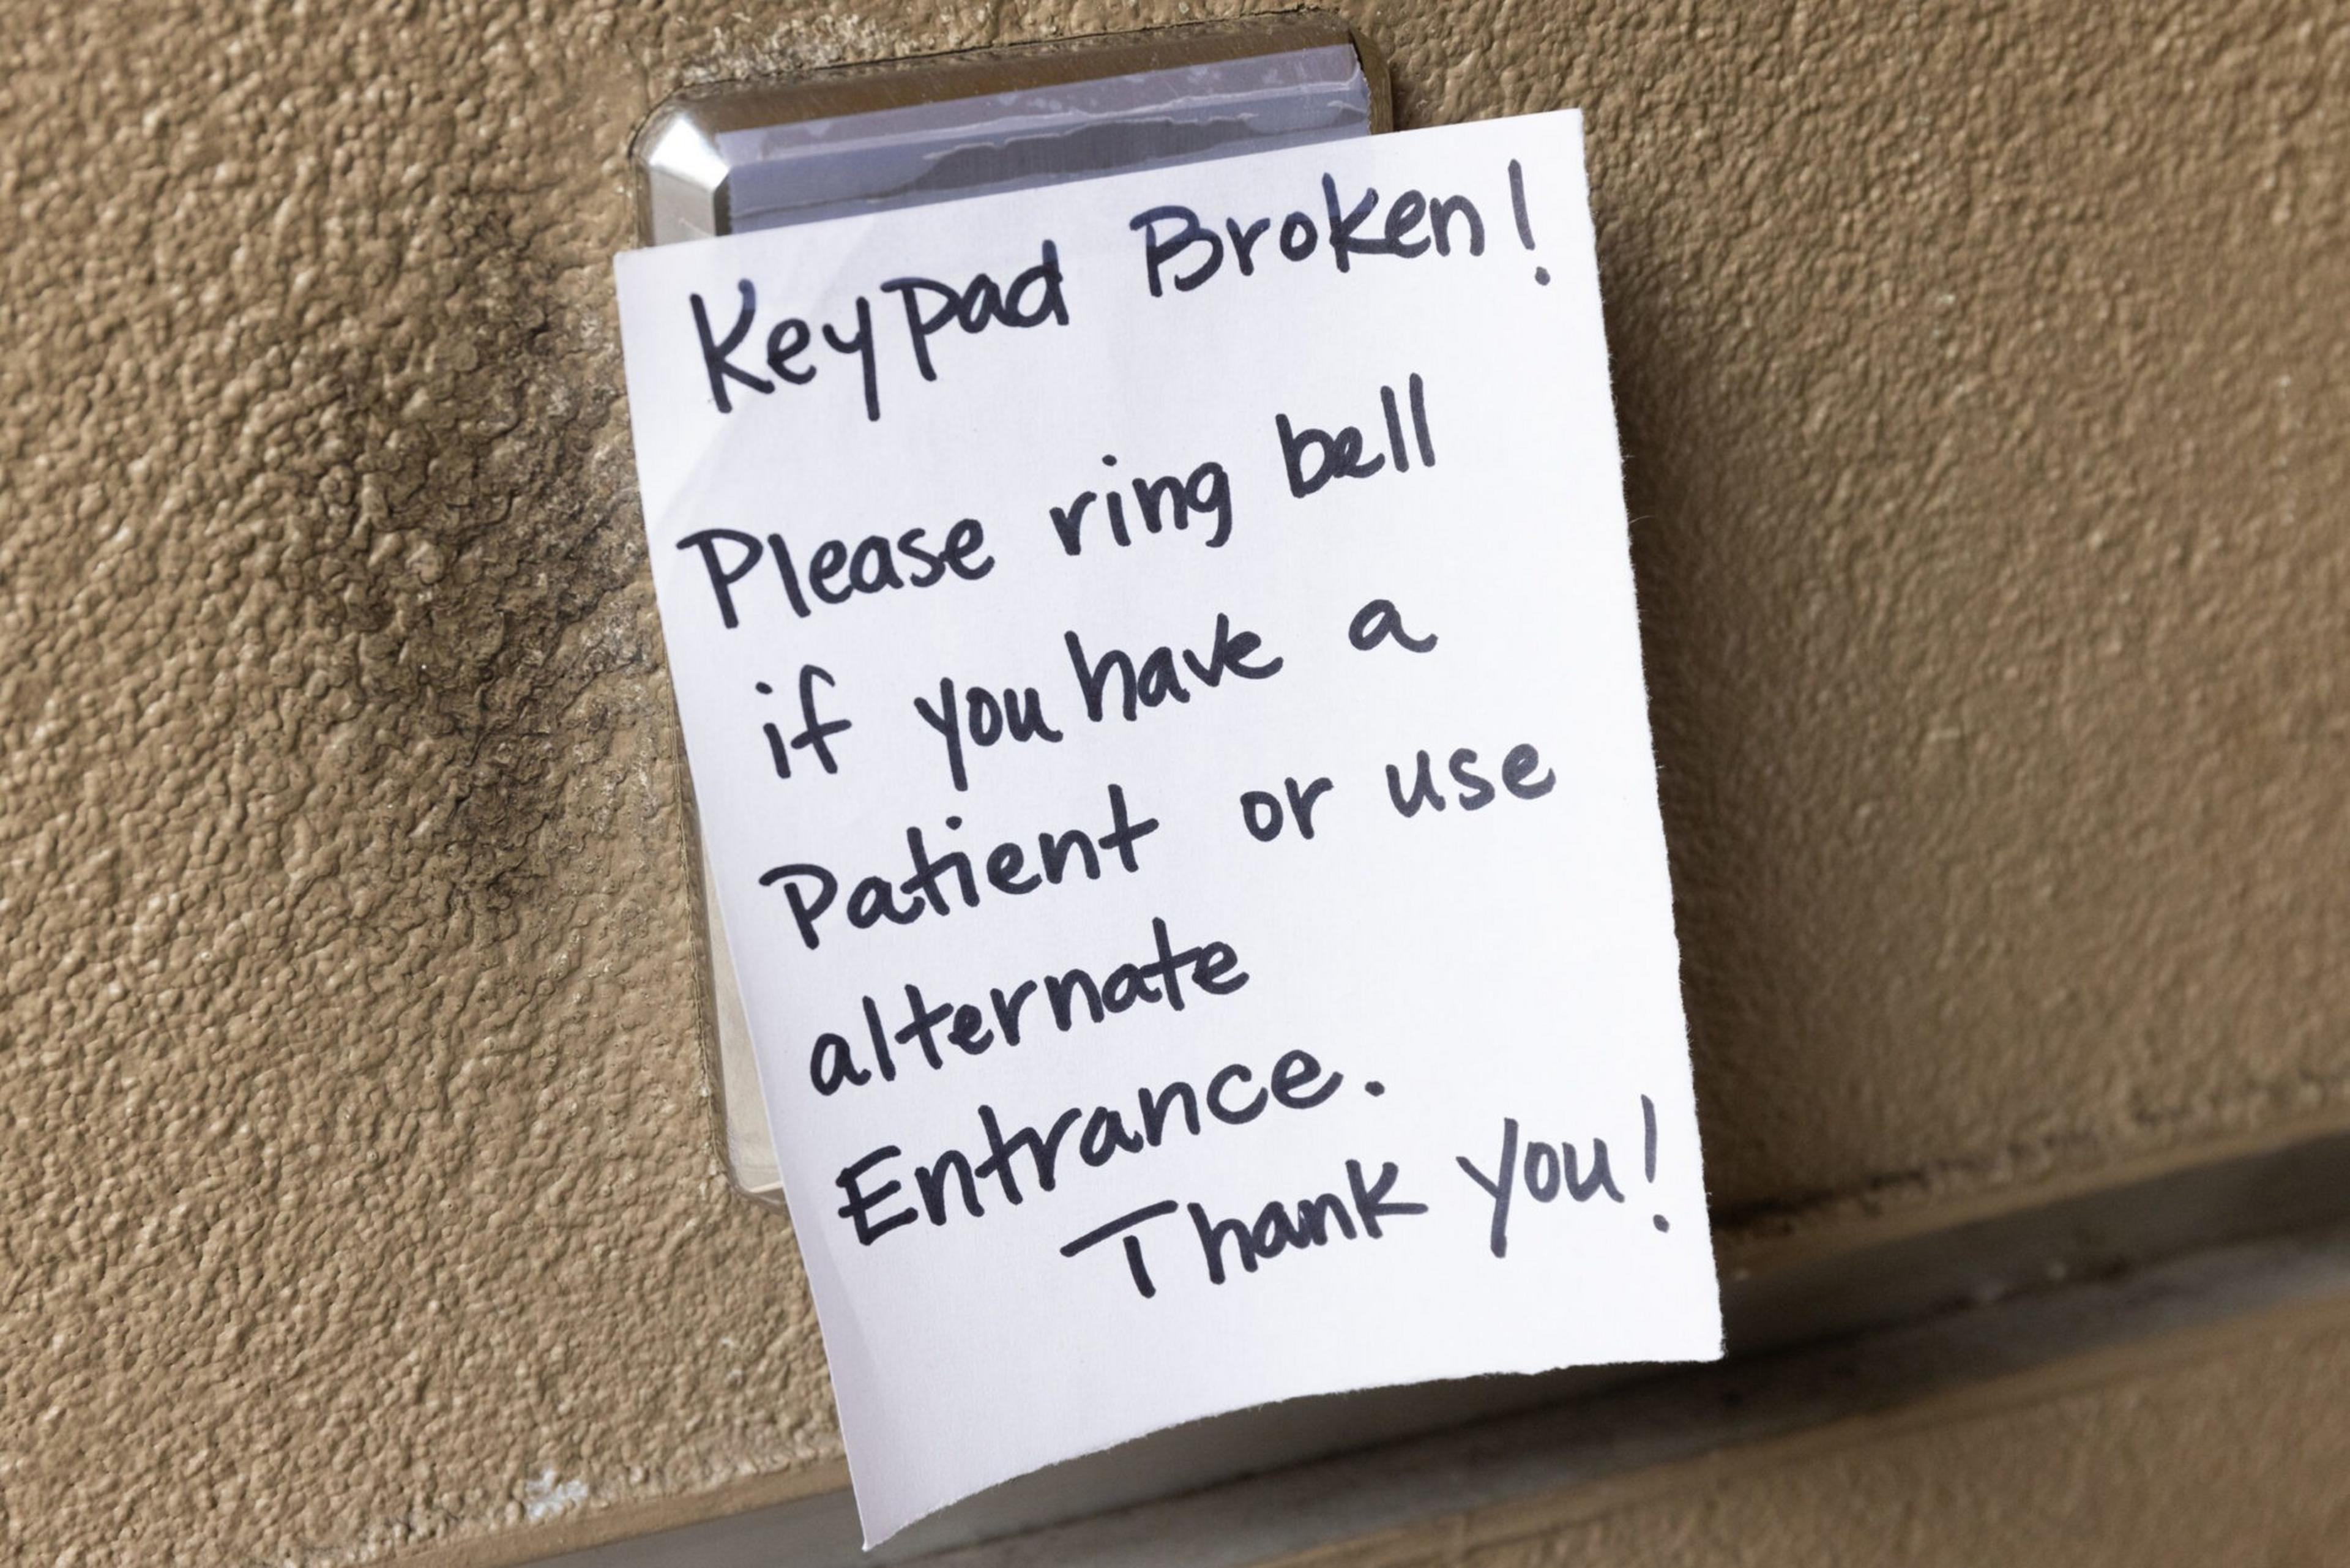 Keypad Broken!
Please ring bell
if you have a
Patient or use
alternate
Entrance.
Thank you!